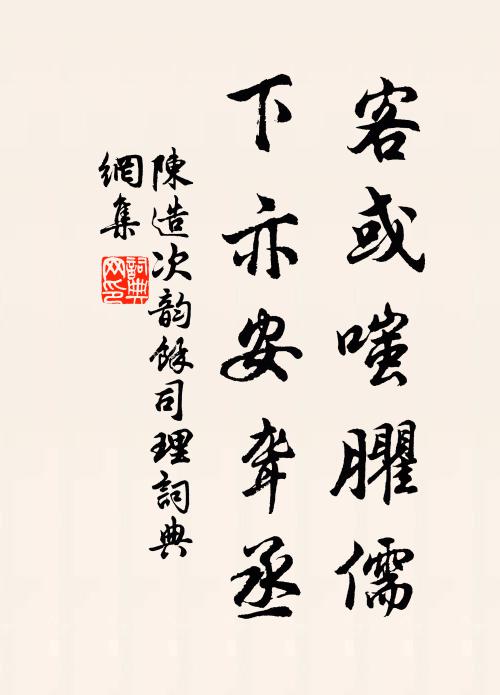 客或嗤臞儒
下亦安聋丞
陳造次韵餘司理詞典
網集
詞典网印